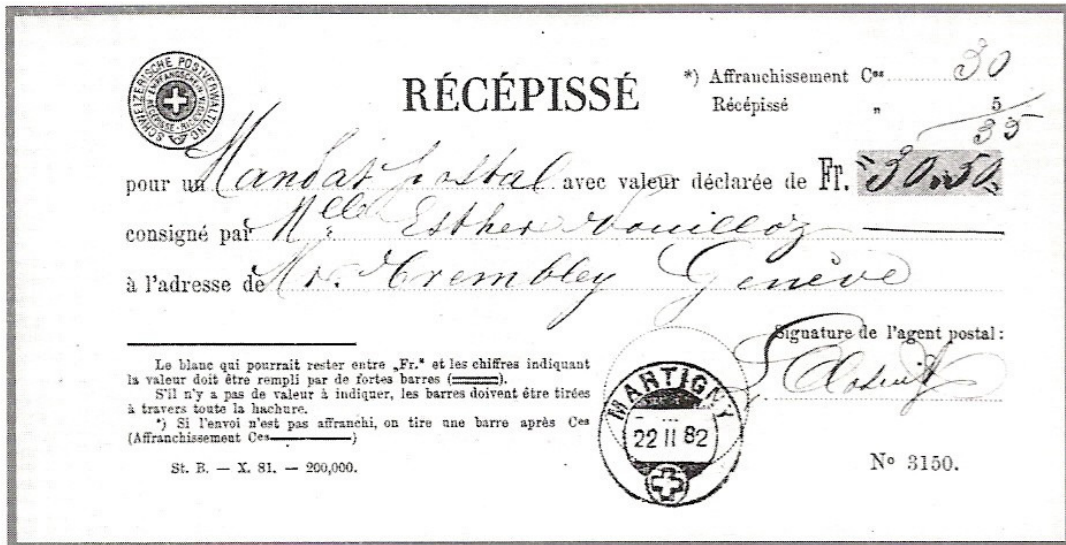 SCHWEIZERISCHE POSTVERWALTUNG
RÉCÉPISSÉ
*) Affranchissement Ces 30
Récépissé „ 5
35
pour un Mandat postal avec valeur déclarée de Fr. "30.50"
consigné par Mlle Esther Vouilloz
à l'adresse de Mr. Trembley Genève
Signature de l'agent postal:
Le blanc qui pourrait rester entre „Fr." et les chiffres indiquant
la valeur doit être rempli par de fortes barres (═══).
S'il n'y a pas de valeur à indiquer, les barres doivent être tirées
à travers toute la hachure.
*) Si l'envoi n'est pas affranchi, on tire une barre après Ces
(Affranchissement Ces———)
MARTIGNY
22 II 82
St. B. — X. 81. — 200,000.
No 3150.